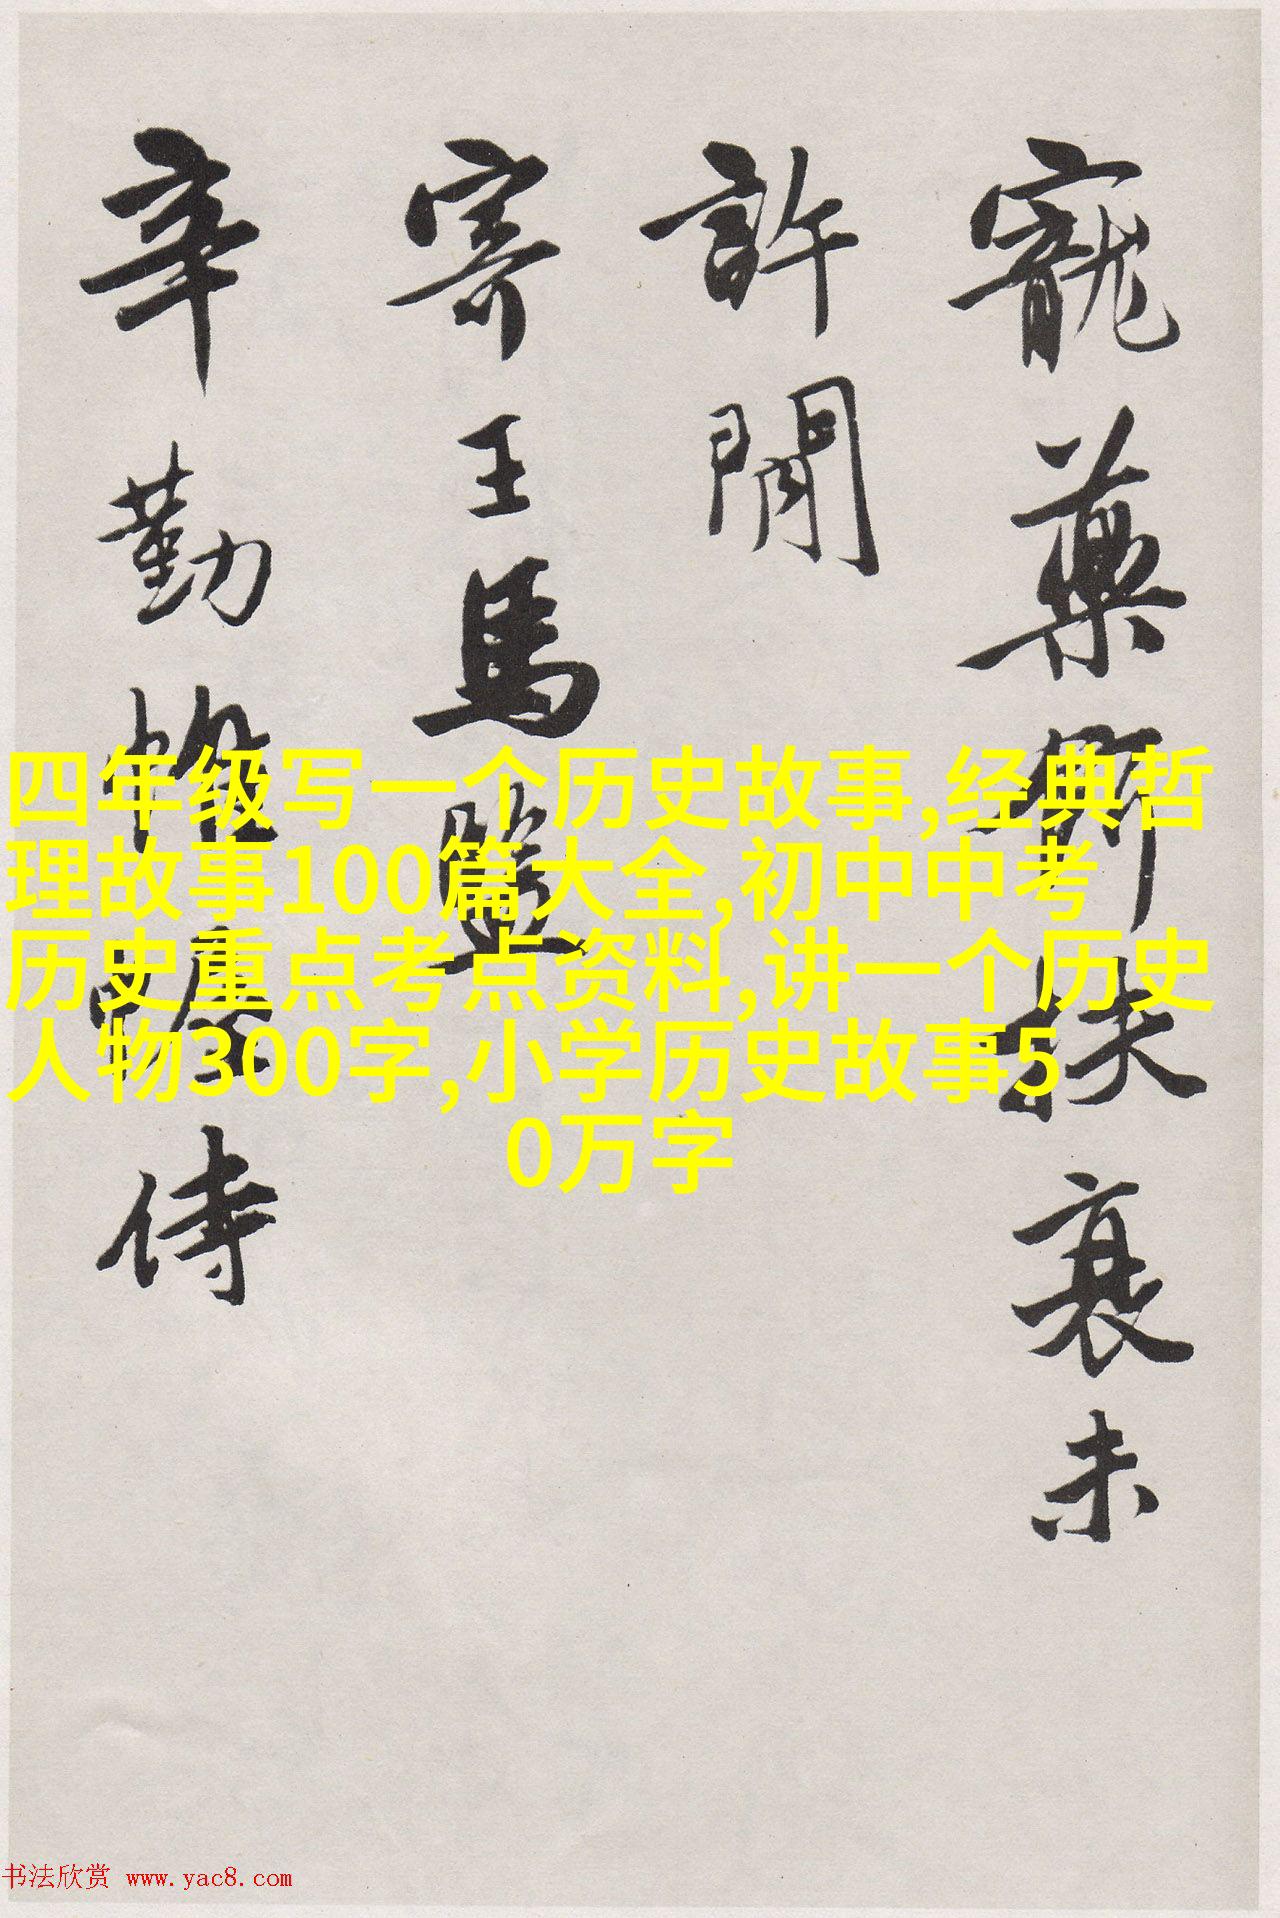 寵藥扶衰未
許閒
寄王馬監
辛勤帷幄侍
四年级写一个历史故事,经典哲
理故事100篇大全,初中中考
历史重点考点资料,讲一个历史
人物300字,小学历史故事5
0万字
书法欣赏 www.yac8.com